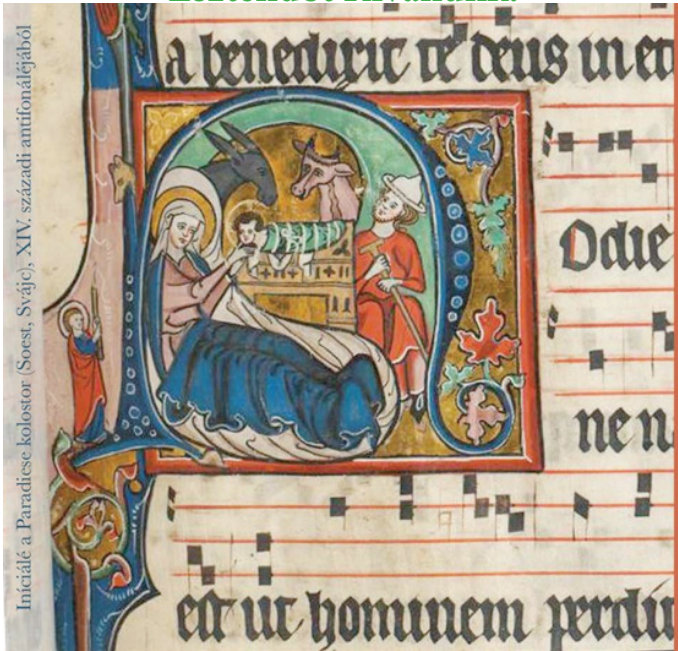 Iniciálé a Paradiese kolostor (Soest, Svájc), XIV. századi antifonáléjából
a benedixit te deus in et
Odie
ne n
est ut hominem perdit